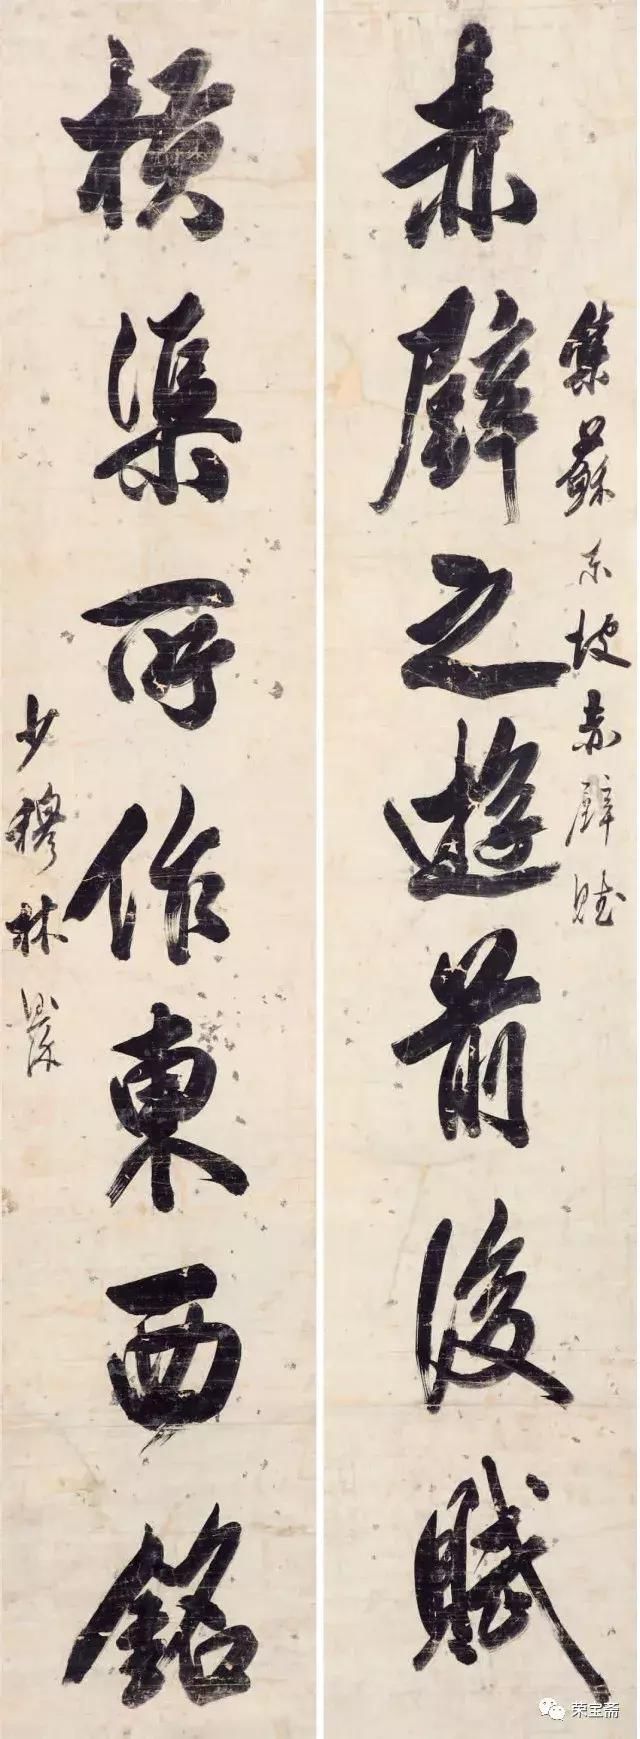 集蘇東坡赤壁賦
赤壁之遊前後賦
橫渠所作東西銘
少穆林則徐
荣宝斋